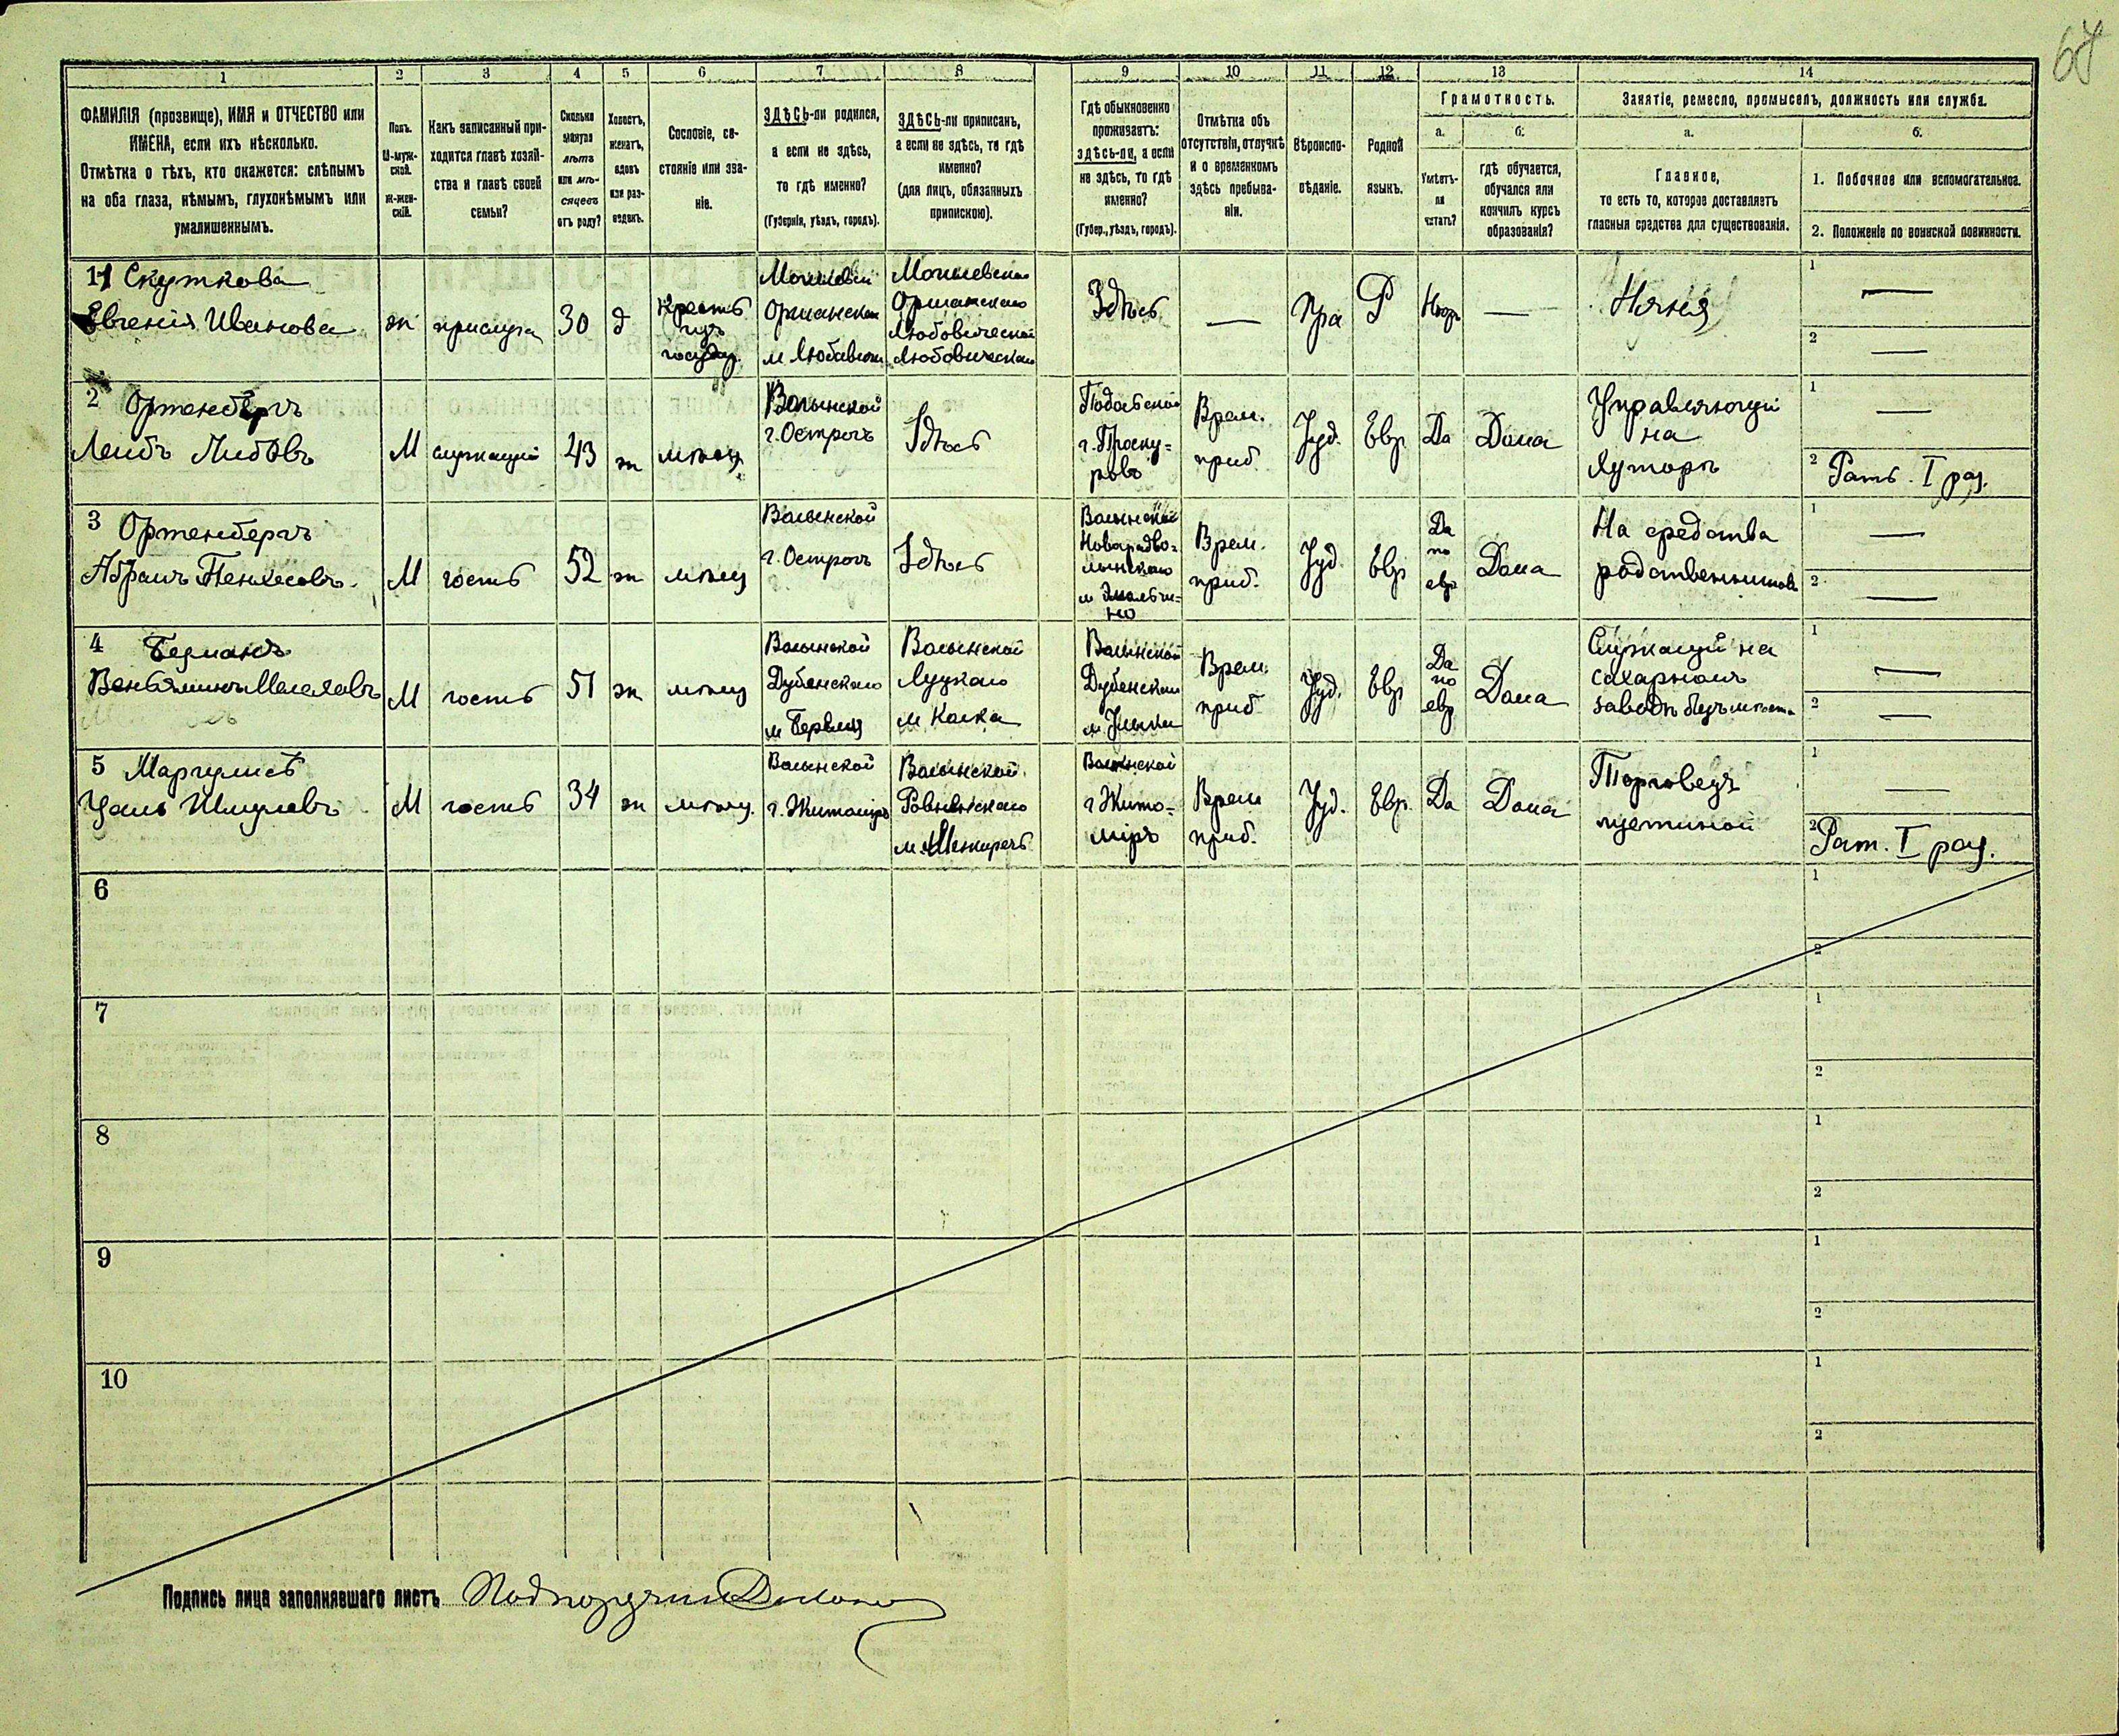 67
1
2
3
4
5
6
7
8
9
10
11
12
13
14
ФАМИЛІЯ (прозвище), ИМЯ и ОТЧЕСТВО или
ИМЕНА, если ихъ нѣсколько.
Отмѣтка о тѣхъ, кто окажется: слѣпымъ
на оба глаза, нѣмымъ, глухонѣмымъ или
умалишеннымъ.
Полъ.
М-муж-
ской.
Ж-жен-
скій.
Какъ записанный при-
ходится главѣ хозяй-
ства и главѣ своей
семьи?
Сколько
минуло
лѣтъ
или мѣ-
сяцевъ
отъ роду?
Холостъ,
женатъ,
вдовъ
или раз-
веденъ.
Сословіе, со-
стояніе или зва-
ніе.
ЗДѢСЬ-ли родился,
а если не здѣсь,
то гдѣ именно?
(Губернія, уѣздъ, городъ).
ЗДѢСЬ-ли приписанъ,
а если не здѣсь, то гдѣ
именно?
(для лицъ, обязанныхъ
припискою).
Гдѣ обыкновенно
проживаетъ:
здѣсь-ли, а если
не здѣсь, то гдѣ
именно?
(Губер., уѣздъ, городъ).
Отмѣтка объ
отсутствіи, отлучкѣ
и о временномъ
здѣсь пребыва-
ніи.
Вѣроиспо-
вѣданіе.
Родной
языкъ.
Грамотность.
а.
б.
Умѣетъ-
ли
читать?
гдѣ обучается,
обучался или
кончилъ курсъ
образованія?
Занятіе, ремесло, промыселъ, должность или служба.
а.
б.
Главное,
то есть то, которое доставляетъ
главныя средства для существованія.
1. Побочное или вспомогательное.
2. Положеніе по воинской повинности.
11 Скуткова
Евгенія Иванова
ж
прислуга
30
д
Могилевской
Оршанскаго
Могилевской
Оршанскаго
Здѣсь
—
Пра
Р
—
Няня
1
—
2
—
2 Ортенбергъ
Лейбъ Лейбовъ
М
служащій
43
ж
мѣщ.
Волынской
г. Острогъ
Здѣсь
Подольской
г. Проску-
ровъ
Врем.
приб.
Іуд.
Евр.
Да
Дома
Управляющій
на
хуторѣ
1
—
2 Рат. I раз.
3 Ортенбергъ
Абрамъ
М
гость
52
ж
мѣщ
Волынской
г. Острогъ
Здѣсь
Волынской
Врем.
приб.
Іуд
Евр
Да
по
евр
Дома
На средства
родственниковъ
1
—
2
—
4 Берманъ
М
гость
51
ж
мѣщ
Волынской
Дубенскаго
Волынской
Луцкаго
м. Колка
Волынской
Дубенскаго
Врем.
приб
Іуд.
Евр
Да
по
евр
Дома
Служащій на
сахарномъ
заводѣ безъ мѣста
1
—
2
—
5 Маргулисъ
М
гость
34
ж
мѣщ.
Волынской
г. Житоміръ
Волынской
Ровненскаго
м. Межиречъ
Волынской
г. Жито-
міръ
Врем
приб.
Іуд.
Евр.
Да
Дома
Торговецъ
щетиной
1
—
2 Рат. I раз.
6
1
2
7
1
2
8
1
2
9
1
2
10
1
2
Подпись лица заполнявшаго листъ